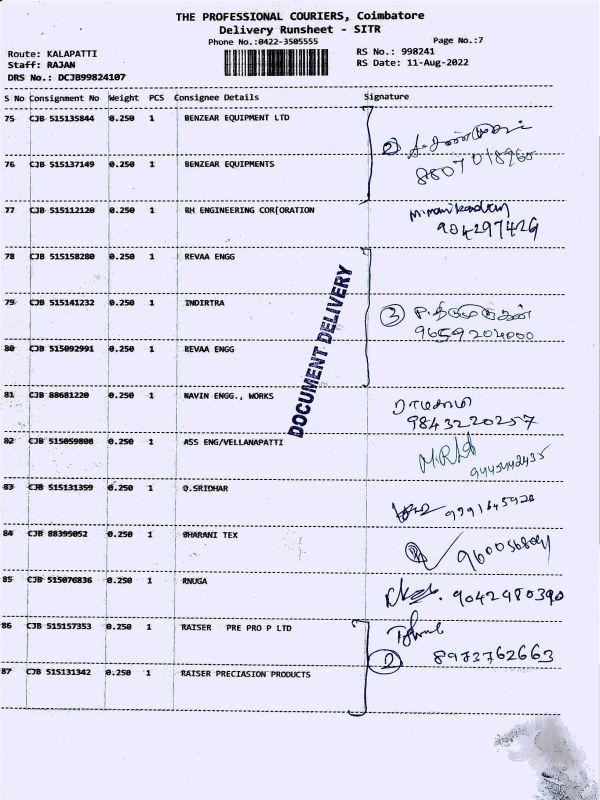 THE PROFESSIONAL COURIERS, Coimbatore
Delivery Runsheet - SITR
Phone No.:0422-3505555
Page No.:7
Route: KALAPATTI
RS No.: 998241
Staff: RAJAN
RS Date: 11-Aug-2022
DRS No.: DCJB99824107
S No Consignment No Weight PCS Consignee Details Signature
75 CJB 515135844 0.250 1 BENZEAR EQUIPMENT LTD
76 CJB 515137149 0.250 1 BENZEAR EQUIPMENTS
8807018960
77 CJB 515112120 0.250 1 RH ENGINEERING COR[ORATION
M.manikandan
904297426
78 CJB 515158280 0.250 1 REVAA ENGG
79 CJB 515141232 0.250 1 INDIRTRA
③
9659204000
80 CJB 515092991 0.250 1 REVAA ENGG
DOCUMENT DELIVERY
81 CJB 88681220 0.250 1 NAVIN ENGG., WORKS
ராமசாமி
9843220257
82 CJB 515059808 0.250 1 ASS ENG/VELLANAPATTI
9445442435
83 CJB 515131359 0.250 1 O.SRIDHAR
9791645920
84 CJB 88395052 0.250 1 BHARANI TEX
85 CJB 515076836 0.250 1 RNUGA
9042980390
86 CJB 515157353 0.250 1 RAISER PRE PRO P LTD
② 8973762663
87 CJB 515131342 0.250 1 RAISER PRECIASION PRODUCTS